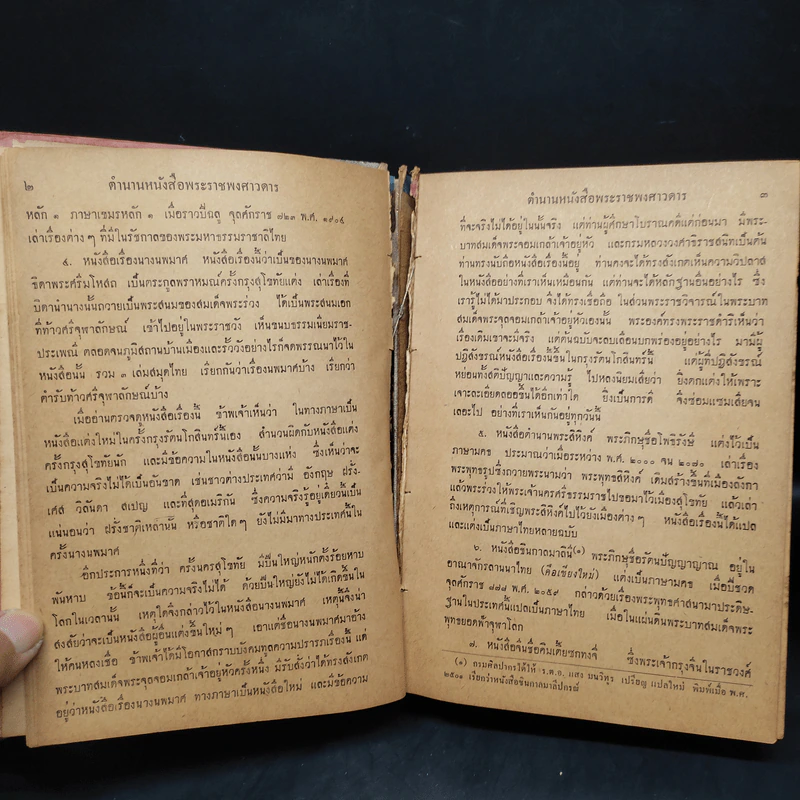 ๒ ตำนานหนังสือพระราชพงศาวดาร
หลัก ๑ ภาษาเขมรหลัก ๑ เมื่อราวปีฉลู จุลศักราช ๗๒๓ พ.ศ. ๑๙๐๔
เล่าเรื่องต่าง ๆ ที่มีในรัชกาลของพระมหาธรรมราชาลิไทย
๔. หนังสือเรื่องนางนพมาศ หนังสือเรื่องนี้ว่าเป็นของนางนพมาศ
ธิดาพระศรีมโหสถ เป็นตระกูลพราหมณ์ครั้งกรุงสุโขทัยแต่ง เล่าเรื่องที่
บิดานำนางนั้นถวายเป็นพระสนมของสมเด็จพระร่วง ได้เป็นพระสนมเอก
ที่ท้าวศรีจุฬาลักษณ์ เข้าไปอยู่ในพระราชวัง เห็นขนบธรรมเนียมราช-
ประเพณี ตลอดจนภูมิสถานบ้านเมืองและรั้ววังอย่างไรก็จดพรรณนาไว้ใน
หนังสือนั้น รวม ๓ เล่มสมุดไทย เรียกกันว่าเรื่องนพมาศบ้าง เรียกว่า
ตำรับท้าวศรีจุฬาลักษณ์บ้าง
เมื่ออ่านตรวจดูหนังสือเรื่องนี้ ข้าพเจ้าเห็นว่า ในทางภาษาเป็น
หนังสือแต่งใหม่ในครั้งกรุงรัตนโกสินทร์นี้เอง สำนวนผิดกับหนังสือแต่ง
ครั้งกรุงสุโขทัยนัก และมีข้อความในหนังสือนั้นบางแห่ง ซึ่งเห็นว่าจะ
เป็นความจริงไม่ได้เป็นอันขาด เช่นชาวต่างประเทศว่ามี อังกฤษ ฝรั่ง-
เศส วิลันดา สเปญ และที่สุดอเมริกัน ซึ่งความจริงรู้อยู่เดี๋ยวนี้เป็น
แน่นอนว่า ฝรั่งชาติเหล่านั้น หรือชาติใด ๆ ยังไม่มีมาทางประเทศนี้ใน
ครั้งนางนพมาศ
อีกประการหนึ่งที่ว่า ครั้งนครสุโขทัย มีปืนใหญ่หนักตั้งร้อยหาบ
พันหาบ ข้อนี้ก็จะเป็นความจริงไม่ได้ ด้วยปืนใหญ่ยังไม่ได้เกิดขึ้นใน
โลกในเวลานั้น เหตุใดจึงกล่าวไว้ในหนังสือนางนพมาศ เหตุนี้จึงน่า
สงสัยว่าจะเป็นหนังสือผู้อื่นแต่งขึ้นใหม่ ๆ เอาแต่ชื่อนางนพมาศมาอ้าง
ให้คนหลงเชื่อ ข้าพเจ้าได้มีโอกาสกราบบังคมทูลความปรารภเรื่องนี้ แด่
พระบาทสมเด็จพระจุลจอมเกล้าเจ้าอยู่หัวครั้งหนึ่ง มีรับสั่งว่าได้ทรงสังเกต
อยู่ว่าหนังสือเรื่องนางนพมาศ ทางภาษาเป็นหนังสือใหม่ และมีข้อความ
ตำนานหนังสือพระราชพงศาวดาร ๓
ที่จะจริงไม่ได้อยู่ในนั้นจริง แต่ท่านผู้ศึกษาโบราณคดีแต่ก่อนมา มีพระ-
บาทสมเด็จพระจอมเกล้าเจ้าอยู่หัว และกรมหลวงวงศาธิราชสนิทเป็นต้น
ท่านทรงนับถือหนังสือเรื่องนี้อยู่ ท่านคงจะได้ทรงสังเกตเห็นความวิปลาส
ในหนังสืออย่างที่เราเห็นเหมือนกัน แต่ท่านจะได้หลักฐานอื่นอย่างไร ซึ่ง
เรารู้ไม่ได้มาประกอบ จึงได้ทรงเชื่อถือ ในส่วนพระราชวิจารณ์ในพระบาท
สมเด็จพระจุลจอมเกล้าเจ้าอยู่หัวเองนั้น พระองค์ทรงพระดำริเห็นว่า
เรื่องเดิมเขาจะมีจริง แต่ต้นฉบับจะลบเลือนบกพร่องอยู่อย่างไร มามีผู้
ปฏิสังขรณ์หนังสือเรื่องนี้ขึ้นในกรุงรัตนโกสินทร์นี้ แต่ผู้ที่ปฏิสังขรณ์
หย่อนทั้งสติปัญญาและความรู้ ไปหลงนิยมเสียว่า ยิ่งตกแต่งให้เพราะ
เจาะละเอียดลออขึ้นได้อีกเท่าใด ยิ่งเป็นการดี จึงซ่อมแซมเสียจน
เลอะไป อย่างที่เราเห็นกันอยู่ทุกวันนี้
๕. หนังสือตำนานพระสิหิงค์ พระภิกษุชื่อโพธิรังษี แต่งไว้เป็น
ภาษามคธ ประมาณว่าเมื่อระหว่าง พ.ศ. ๒๐๐๐ จน ๒๐๗๐ เล่าเรื่อง
พระพุทธรูปซึ่งถวายพระนามว่า พระพุทธสิหิงค์ เดิมสร้างขึ้นที่เมืองลังกา
แล้วพระร่วงให้พระเจ้านครศรีธรรมราชไปขอมาไว้เมืองสุโขทัย แล้วเล่า
ถึงเหตุการณ์ที่เชิญพระสิหิงค์ไปไว้ยังเมืองต่าง ๆ หนังสือเรื่องนี้ได้แปล
และแต่งเป็นภาษาไทยหลายฉบับ
๖. หนังสือชินกาลมาลินี(๑) พระภิกษุชื่อรัตนปัญญาญาณ อยู่ใน
อาณาจักรลานนาไทย (คือเชียงใหม่) แต่งเป็นภาษามคธ เมื่อปีชวด
จุลศักราช ๘๗๘ พ.ศ. ๒๐๕๙ กล่าวด้วยเรื่องพระพุทธศาสนามาประดิษ-
ฐานในประเทศนี้แปลเป็นภาษาไทย เมื่อในแผ่นดินพระบาทสมเด็จพระ
พุทธยอดฟ้าจุฬาโลก
๗. หนังสือจีนชื่อคิมเตี้ยซกทงจี่ ซึ่งพระเจ้ากรุงจีนในราชวงศ์
(๑) กรมศิลปากรได้ให้ ร.ต.ท. แสง มนวิทูร เปรียญ แปลใหม่ พิมพ์เมื่อ พ.ศ.
๒๕๐๑ เรียกว่าหนังสือชินกาลมาลีปกรณ์